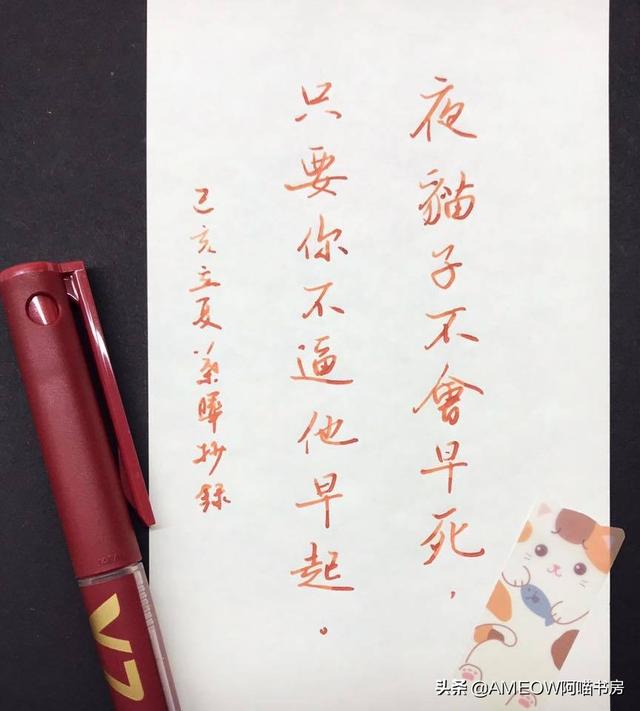 夜貓子不會早死，
只要你不逼他早起。
己亥立夏葉曄抄錄
V7
头条 @AMEOW阿喵书房